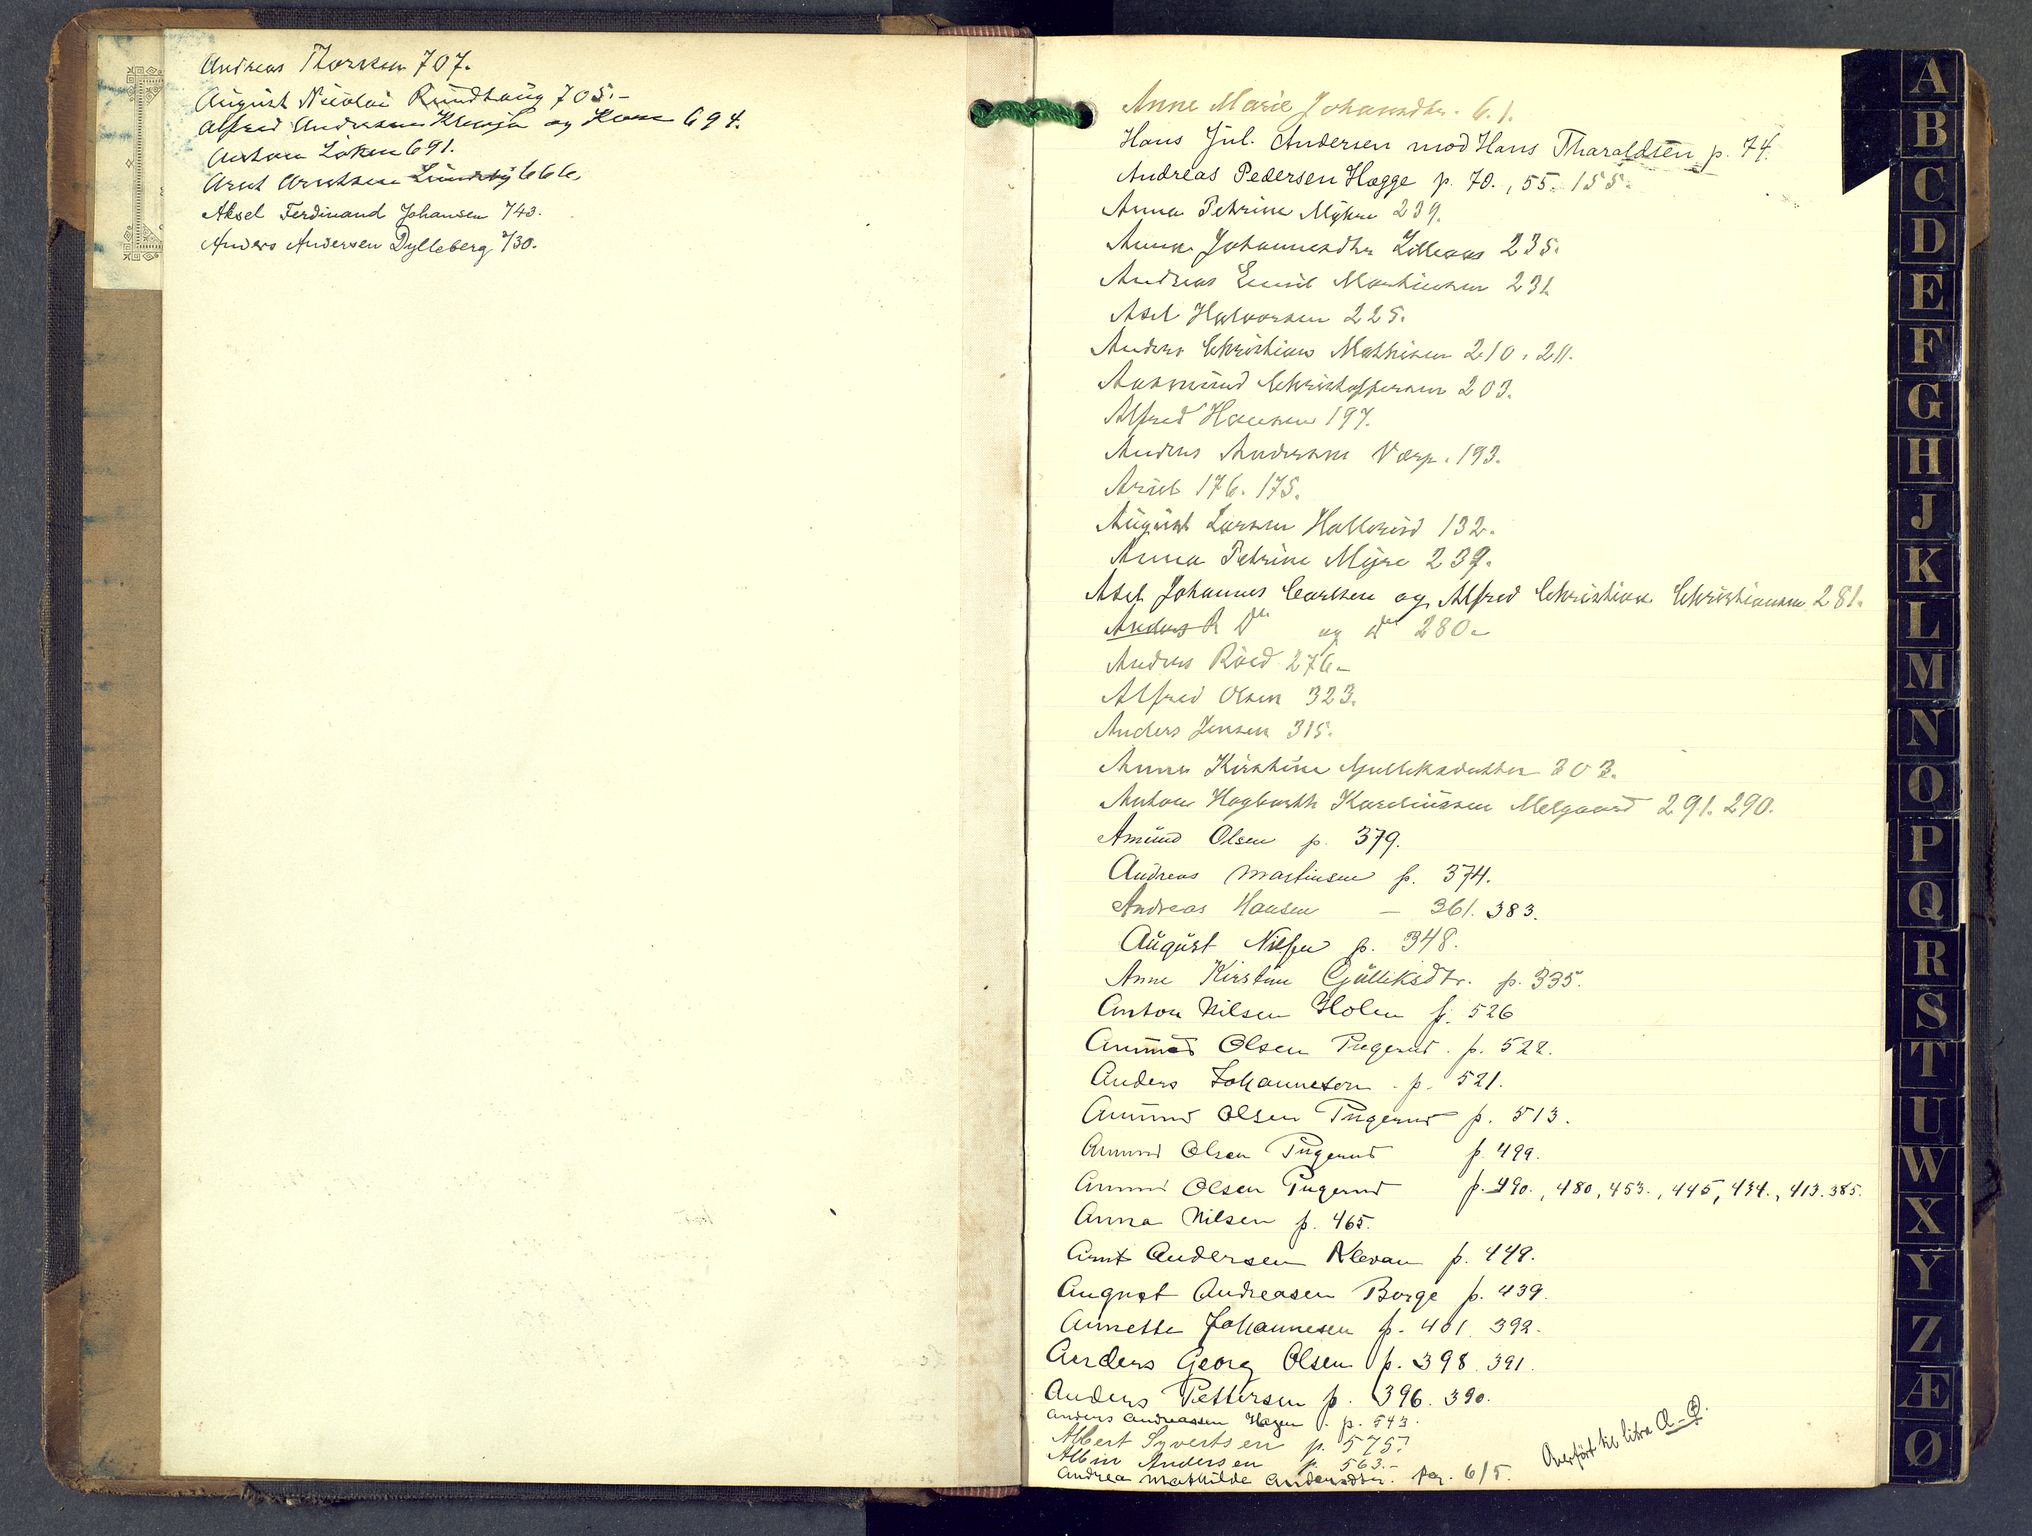 Andreas Thorssen 707.
August Nicolai Rundhaug 705.-
Alfred Andersen og 694.
Anton Löken 691.
Arnt Arntsen Lundeby 666.
Aksel Ferdinand Johansen 743.
Anders Andersen Dylleberg 730.
Anne Marie Johansdtr. 61.
Hans Jul. Andersen mod Hans Tharaldsen p. 74.
Andreas Pedersen Hægge p. 70., 55. 155.
Anna Petrine Myhre 239.
Anna Johannesdtr Lilleaas 235.
Andreas Emil Mathiesen 231
Axel Halvorsen 225.
Anders Christian Mathisen 210. 211.
Aasmund Christoffersen 203.
Alfred Hansen 197.
Anders Andersen Værp. 193.
Arnt 176. 175.
August Larsen Hallerud 132.
Anna Petrine Myre 239.
Axel Johannes Carlsen og Alfred Christian Christiansen 281.
Anders R Do og do 280.
Anders Röed 276.
Alfred Olsen 323.
Anders Jensen 315.
Anne Kirstine Gulliksdatter 303.
Anton Hagbarth Kareliussen Melgaard 291. 290.
Amund Olsen p. 379.
Andreas Martinsen p. 374.
Andreas Hansen — 361. 383.
August Nilsen p. 348.
Anne Kirstine Gulliksdtr. p. 335.
Anton Nilsen Holen p. 526
Amund Olsen Pugerud. p. 522.
Anders Johannesen. p. 521.
Amund Olsen Pugerud p. 513.
Amund Olsen Pugerud p. 499.
Amund Olsen Pugerud p. 490., 480, 453., 445, 434., 413. 385.
Anna Nilsen p. 465.
Arnt Andersen Klevan p. 449.
August Andreasen Borge p. 439.
Annette Johannesen p. 401. 392.
Anders Georg Olsen p. 398. 391.
Anders Pettersen p. 396. 390.
Anders Andreassen Hagen p. 543.
Albert Syvertsen p. 575.
Albin Andersen p. 563.-
Andrea Mathilde Andersdtr. pag. 615.
Overført til litra Q-Ø.
A
B
C
D
E
F
G
H
J
K
L
M
N
O
P
Q
R
S
T
U
W
X
Y
Z
Æ
Ø